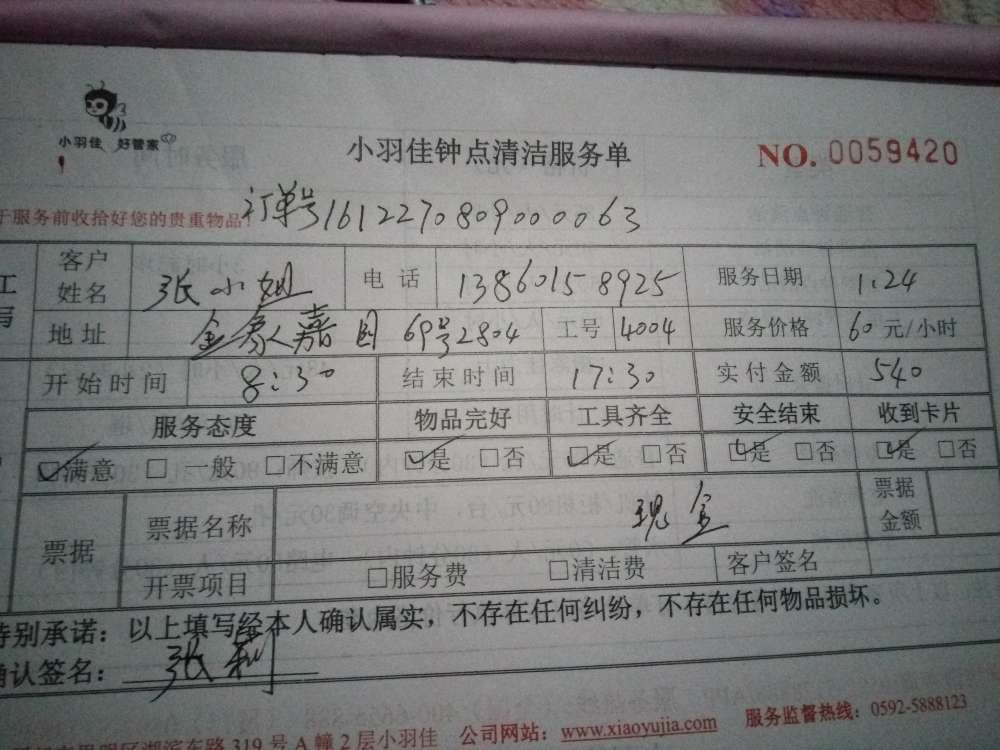 小羽佳 好管家
小羽佳钟点清洁服务单 NO. 0059420
于服务前收拾好您的贵重物品! 订单号161227080900063
客户姓名 张小姐 电话 13860158925 服务日期 1.24
地址 金象嘉园 69号2804 工号 4004 服务价格 60元/小时
开始时间 8:30 结束时间 17:30 实付金额 540
服务态度 物品完好 工具齐全 安全结束 收到卡片
☑满意 □一般 □不满意 ☑是 □否 ☑是 □否 ☑是 □否 ☑是 □否
票据 票据名称 现金 票据金额
开票项目 □服务费 □清洁费 客户签名
特别承诺：以上填写经本人确认属实，不存在任何纠纷，不存在任何物品损坏。
确认签名： 张莉
湖滨东路319号A幢2层小羽佳 公司网站：www.xiaoyujia.com 服务监督热线：0592-5888123